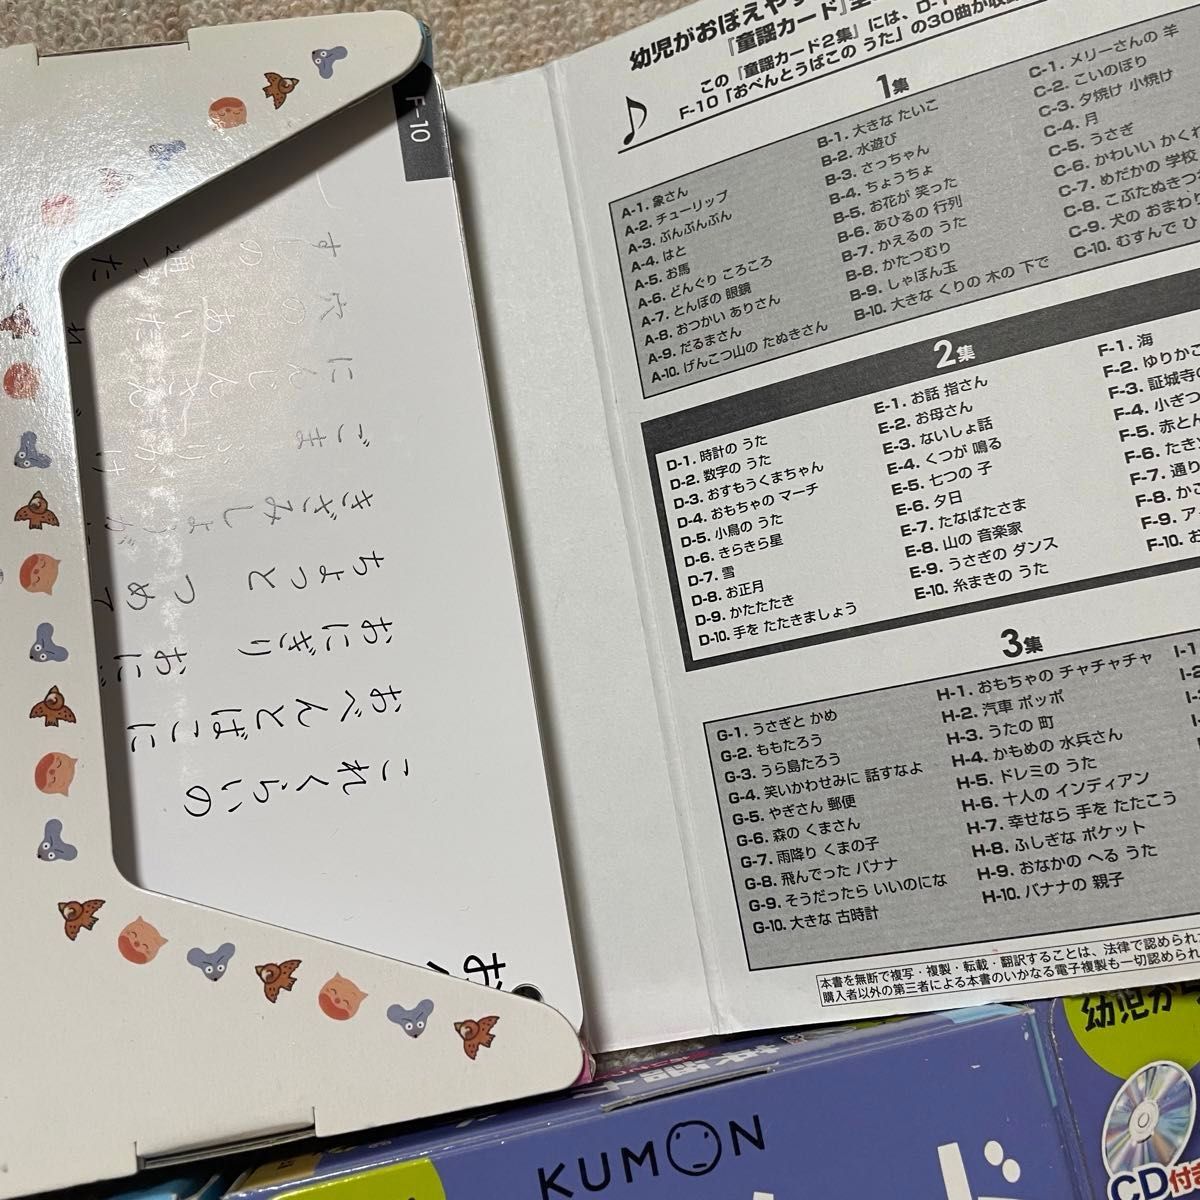 F-10
これくらいの
おべんとばこに
おにぎり
ちょっと
つめて
きざみしょうが
ごま
にんじん
穴
あいた
の
通った
幼児がおぼえやす
『童謡カード』
この『童謡カード2集』には、D-1
F-10「おべんとうばこの うた」の30曲が収
1集
A-1. 象さん
A-2. チューリップ
A-3. ぶんぶんぶん
A-4. はと
A-5. お馬
A-6. どんぐり ころころ
A-7. とんぼの 眼鏡
A-8. おつかい ありさん
A-9. だるまさん
A-10. げんこつ山の たぬきさん
B-1. 大きな たいこ
B-2. 水遊び
B-3. さっちゃん
B-4. ちょうちょ
B-5. お花が 笑った
B-6. あひるの 行列
B-7. かえるの うた
B-8. かたつむり
B-9. しゃぼん玉
B-10. 大きな くりの 木の 下で
C-1. メリーさんの 羊
C-2. こいのぼり
C-3. 夕焼け 小焼け
C-4. 月
C-5. うさぎ
C-6. かわいい かくれ
C-7. めだかの 学校
C-8. こぶたぬきつね
C-9. 犬の おまわり
C-10. むすんで ひ
2集
D-1. 時計の うた
D-2. 数字の うた
D-3. おすもうくまちゃん
D-4. おもちゃの マーチ
D-5. 小鳥の うた
D-6. きらきら星
D-7. 雪
D-8. お正月
D-9. かたたたき
D-10. 手を たたきましょう
E-1. お話 指さん
E-2. お母さん
E-3. ないしょ話
E-4. くつが 鳴る
E-5. 七つの 子
E-6. 夕日
E-7. たなばたさま
E-8. 山の 音楽家
E-9. うさぎの ダンス
E-10. 糸まきの うた
F-1. 海
F-2. ゆりかご
F-3. 証城寺の
F-4. 小ぎつ
F-5. 赤とん
F-6. たき
F-7. 通り
F-8. かご
F-9. ア
F-10. お
3集
G-1. うさぎと かめ
G-2. ももたろう
G-3. うら島たろう
G-4. 笑いかわせみに 話すなよ
G-5. やぎさん 郵便
G-6. 森の くまさん
G-7. 雨降り くまの子
G-8. 飛んでった バナナ
G-9. そうだったら いいのにな
G-10. 大きな 古時計
H-1. おもちゃの チャチャチャ
H-2. 汽車 ポッポ
H-3. うたの 町
H-4. かもめの 水兵さん
H-5. ドレミの うた
H-6. 十人の インディアン
H-7. 幸せなら 手を たたこう
H-8. ふしぎな ポケット
H-9. おなかの へる うた
H-10. バナナの 親子
I-1
I-2
本書を無断で複写・複製・転載・翻訳することは、法律で認められ
購入者以外の第三者による本書のいかなる電子複製も一切認められ
KUMON
ド
幼児が
CD付き